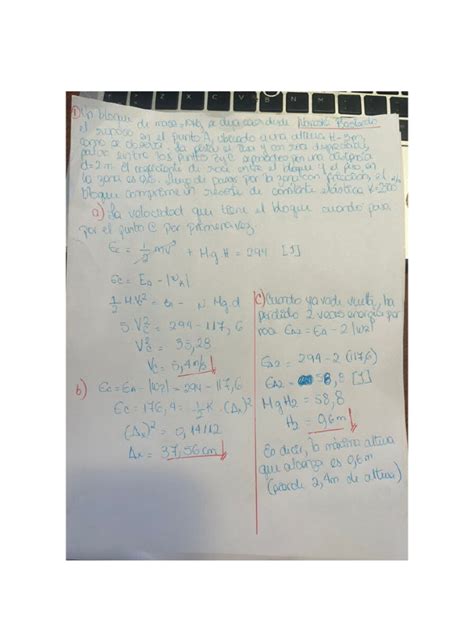 ① Un bloque de masa M, se deja caer desde Abraski Bastardo
el reposo en el punto A, ubicado a una altura H=3m,
como se observa. La pista es lisa y con roce despreciable,
salvo entre los puntos B y C separados por una distancia
d=2m. El coeficiente de roce entre el bloque y el piso en
la zona es 0,6. Luego de pasar por la zona con fricción, el
bloque comprime un resorte de constante elástica K=2500 N/m
a) La velocidad que tiene el bloque cuando pasa
por el punto C por primera vez
Ec = 1/2 mv² + MgH = 294 [J]
Ec = EA - |WR|
1/2 M.Vc² = EA - N Mg d
5 Vc² = 294 - 117,6
Vc² = 35,28
Vc = 5,94 m/s
b) Ec = EA - |WR| = 294 - 117,6
Ec = 176,4 = 1/2 K . (Δx)²
(Δx)² = 0,14112
Δx = 37,56 cm
c) Cuando va de vuelta, ha
perdido 2 veces energía por
roce EA2 = EA - 2|WR|
EA2 = 294 - 2 (117,6)
EA2 = 58,8 [J]
MgH2 = 58,8
H2 = 0,6m
Es decir, la máxima altura
que alcanza es 0,6m
(pierde 2,4m de altura)